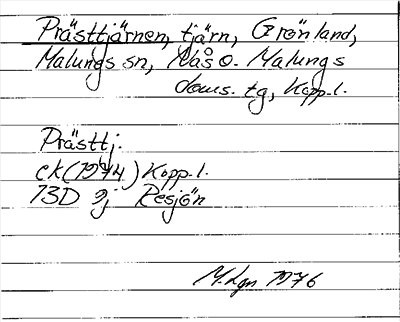 Prästtjärnen, tjärn, Grönland,
Malungs sn, Nås o. Malungs
doms. tg, Kopp.l.
Prästtj.
ek (1974) Kopp.l.
13D 9j Resjön
M.Lgn 1976